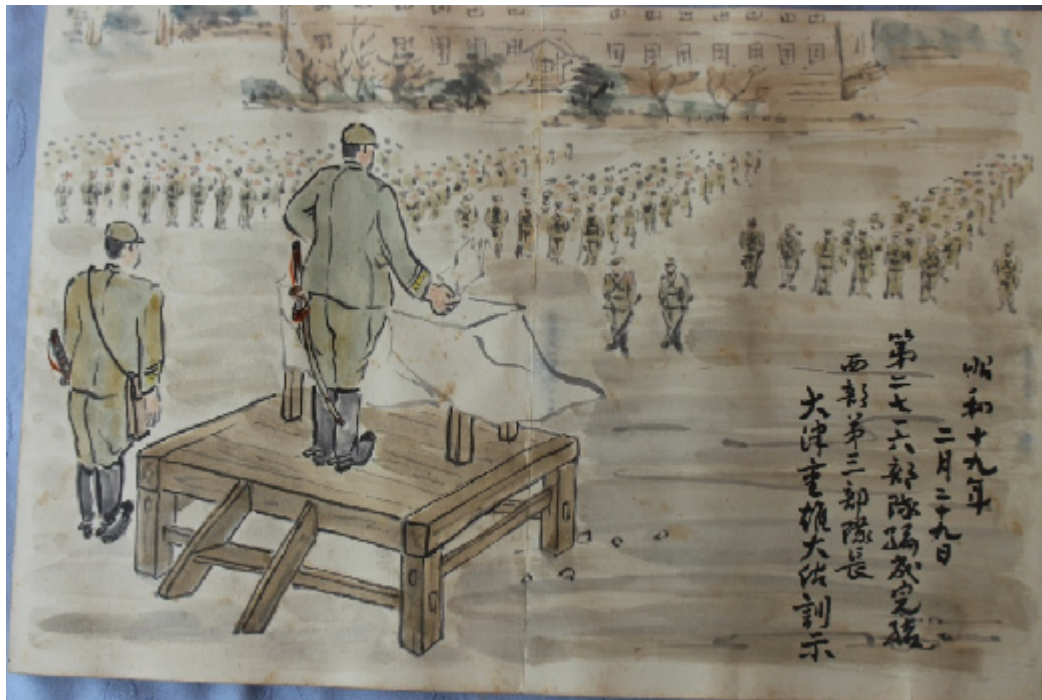 昭和十九年
二月二十九日
第二七一六部隊編成完結
西部第三部隊長
大津重雄大佐訓示